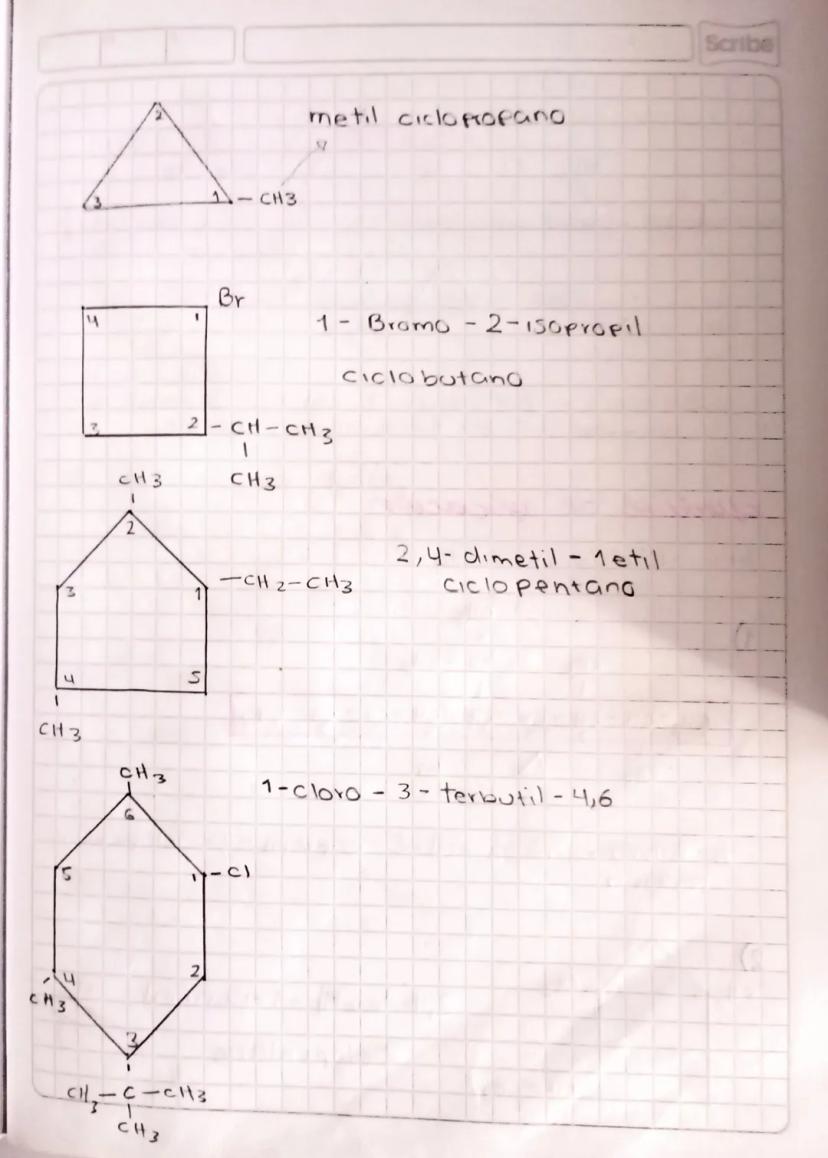 Scribe
2
metil ciclopropano
3
1
- CH3
Br
4
1
1 - Bromo - 2 - isopropil
ciclobutano
3
2
- CH - CH3
CH3
CH3
2
2,4- dimetil - 1 etil
ciclopentano
- CH2 - CH3
3
1
4
5
CH3
CH3
1-cloro - 3 - terbutil - 4,6
6
5
1
- Cl
4
2
CH3
3
CH3 - C - CH3
CH3